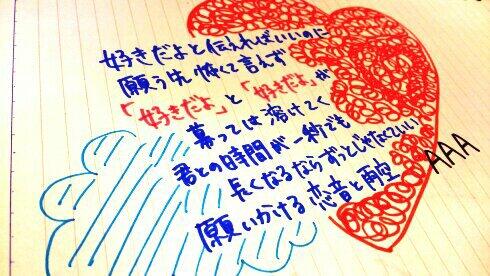 好きだよと伝えればいいのに
願う先怖くて言えず
「好きだよ」と「好きだよ」が
募っては溶けてく
君との時間が一秒でも
長くなるならずっとじゃなくていい
願いかける恋音と雨空
AAA